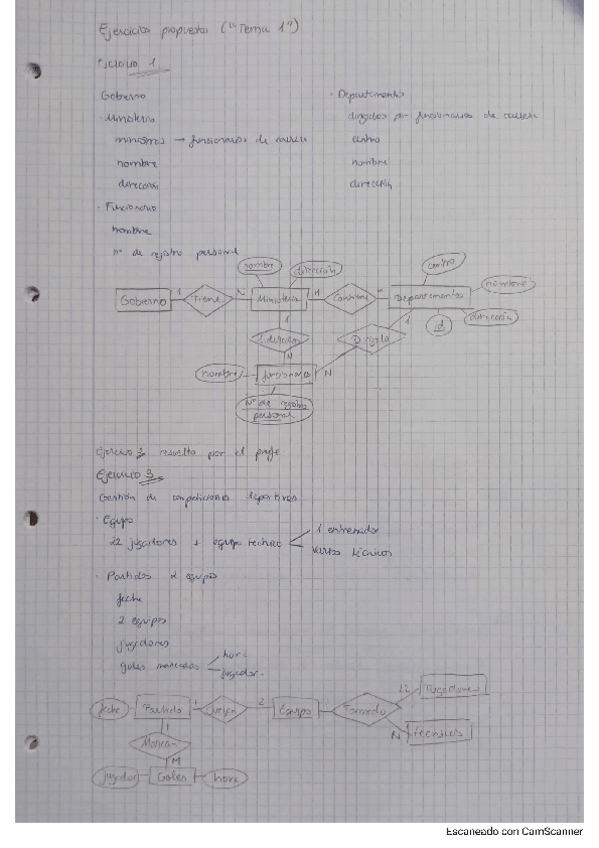 Ejercicios propuestos ("Tema 1")
Ejercicio 1
Gobierno
· Ministerio
ministros → funcionarios de carrera
nombre
dirección
· Funcionario
nombre
nº de registro personal
· Departamento
dirigidos por funcionarios de carrera
centro
nombre
dirección
nombre
dirección
centro
nombre
Gobierno
1
Tiene
N
Ministerio
1
Contiene
Departamento
dirección
id
1
1
N
Dirigido
nombre
funcionarios
N
Nº de registro
personal
Ejercicio 2 resuelto por el profe
Ejercicio 3
Gestión de competiciones deportivas
· Equipo
22 jugadores + equipo tecnico
1 entrenador
varios técnicos
· Partidos 2 equipos
fecha
2 equipos
jugadores
goles marcados
hora
jugador
fecha
Partido
1
Juegan
2
Equipo
Formado
22
Jugadores
N
tecnicos
1
Marcan
M
jugador
Goles
hora
Escaneado con CamScanner